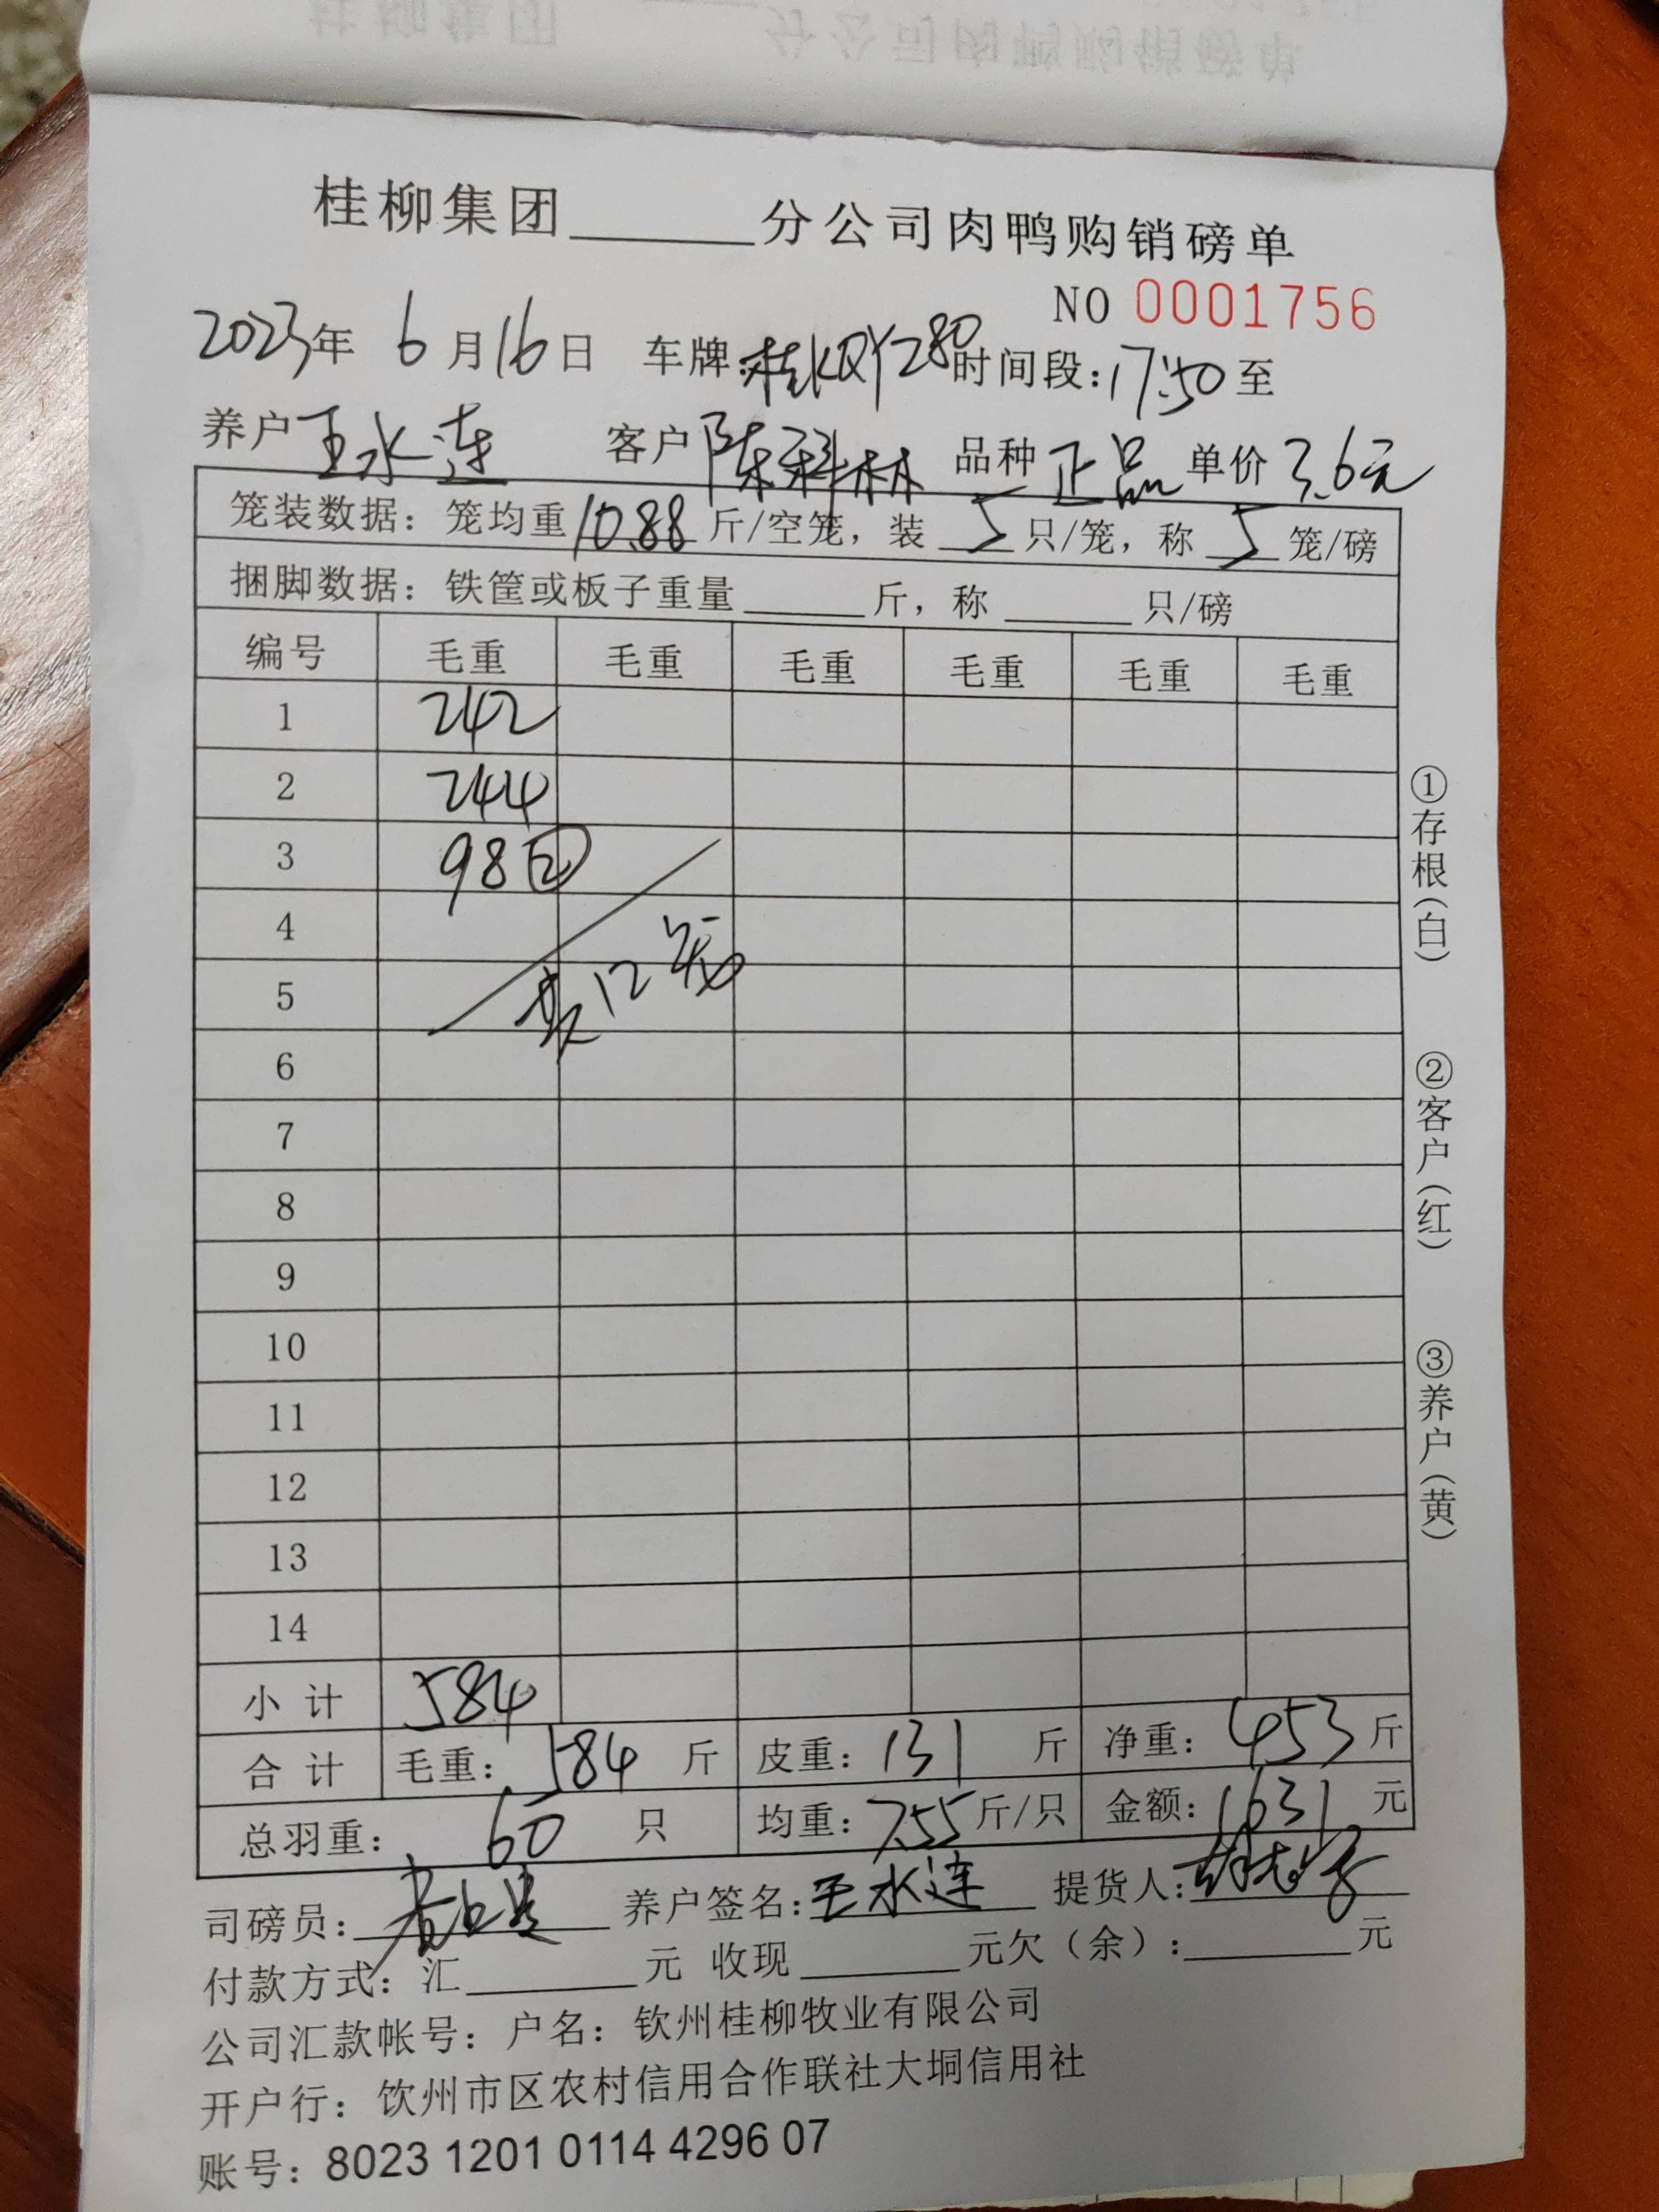 桂柳集团______分公司肉鸭购销磅单
NO 0001756
2023年 6月16日 车牌:桂KQY280 时间段:17:50至
养户 王水连 客户 陈科林 品种 正品 单价 3.6元
笼装数据：笼均重10.88斤/空笼，装 5 只/笼，称 5 笼/磅
捆脚数据：铁筐或板子重量______斤，称______只/磅
编号 毛重 毛重 毛重 毛重 毛重 毛重
1 242
2 244
3 98②
4
5 卖12笼
6
7
8
9
10
11
12
13
14
小计 584
合计 毛重：584 斤 皮重：131 斤 净重：453 斤
总羽重：60 只 均重：7.55 斤/只 金额：1631 元
司磅员: 养户签名:王水连 提货人:
付款方式：汇______元 收现______元欠（余）:______元
公司汇款帐号：户名：钦州桂柳牧业有限公司
开户行：钦州市区农村信用合作联社大垌信用社
账号：8023 1201 0114 4296 07
①存根(白)
②客户(红)
③养户(黄)